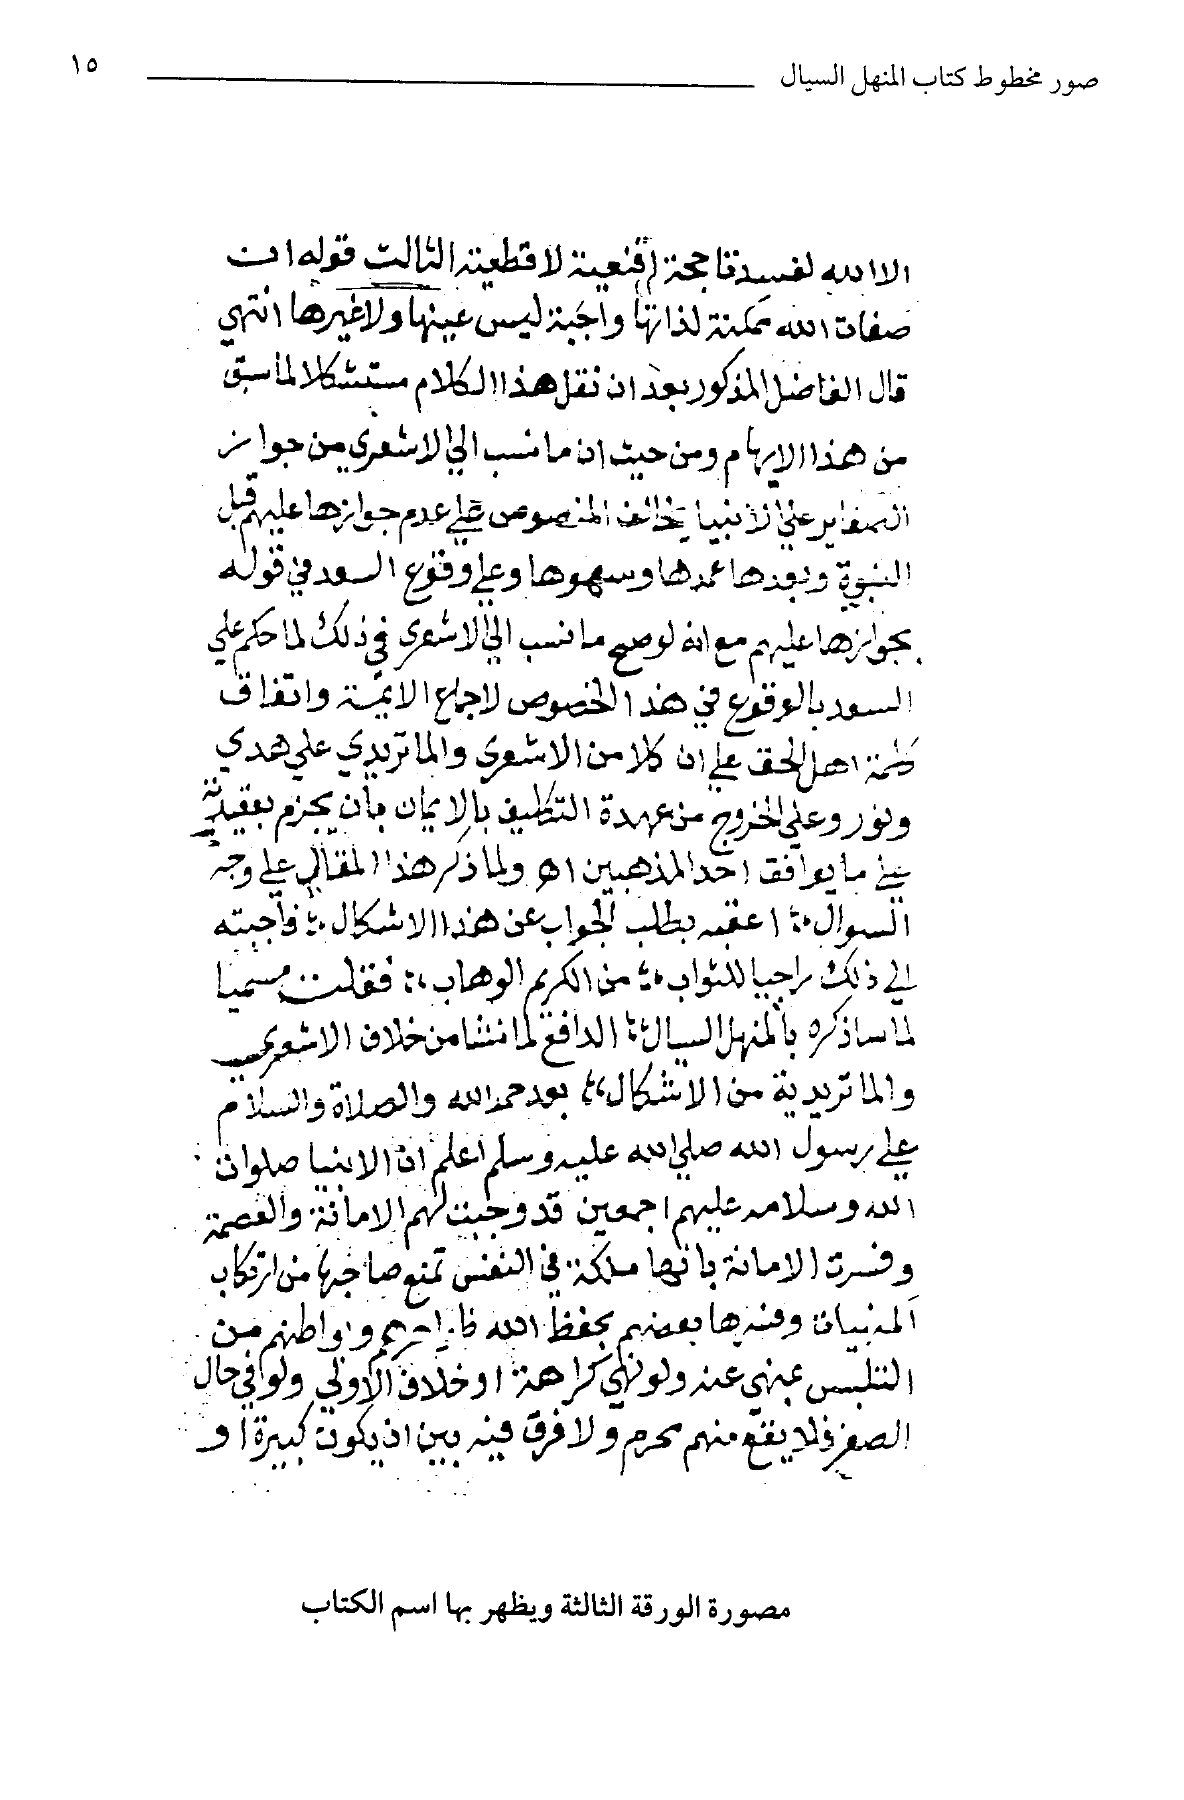 صور مخطوط كتاب المنهل السيال
١٥
الا الله لفسدتا حجة اقنعية لا قطعية الثالث قوله ان
صفات الله ممكنة لذاتها واجبة ليس عينها ولا غيرها انتهي
قال الفاضل المذكور بعد ان نقل هذا الكلام مستشكلا لما سبق
من هذا الايهام ومن حيث ان ما نسب الي الاشعري من جواز
الصغاير علي الانبيا يخالف المنصوص علي عدم جوازها عليهم قبل
النبوة وبعدها عمدها وسهوها وعلي وقوع السعد في قوله
بجوازها عليهم مع انه لو صح ما نسب الي الاشعري في ذلك لما حكم علي
السعد بالوقوع في هذا الخصوص لاجماع الايمة واتفاق
كلمة اهل الحق علي ان كلا من الاشعري والماتريدي علي هدي
ونور وعلي الخروج من عهدة التكليف بالايمان بأن يجزم بعقيدته
علي ما يوافق احد المذهبين اهـ ولما ذكر هذا المقال علي وجه
السوال اعقبه بطلب الجواب عن هذا الاشكال فأجبته
الي ذلك راجيا للثواب من الكريم الوهاب فقلت مسميا
لما ساذكره بالمنهل السيال الدافع لما نشا من خلاف الاشعري
والماتريدية من الاشكال بعد حمد الله والصلاة والسلام
علي رسول الله صلي الله عليه وسلم اعلم ان الانبيا صلوات
الله وسلامه عليهم اجمعين قد وجبت لهم الامانة والعصمة
وفسرت الامانة بانها ملكة في النفس تمنع صاحبها من ارتكاب
المنهيات وفسرها بعضهم بحفظ الله ظواهرهم وبواطنهم من
التلبس بمنهي عنه ولو نهي كراهة او خلاف الاولي ولو في حال
الصغر فلا يقع منهم محرم ولا فرق فيه بين ان يكون كبيرة او
مصورة الورقة الثالثة ويظهر بها اسم الكتاب